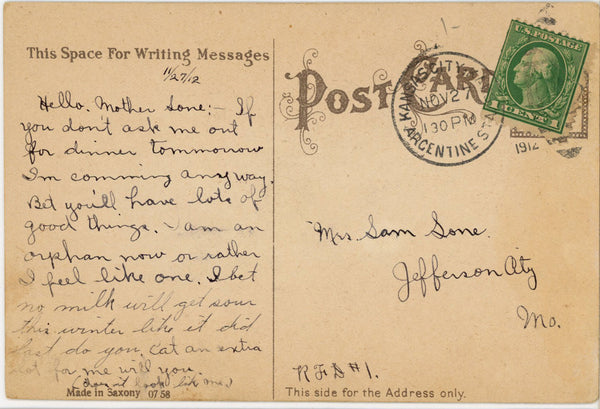 This Space For Writing Messages
11/27/12
Hello. Mother Sone:- If
you don't ask me out
for dinner tommorrow
I'm comming any way.
Bet you'll have lots of
good things. I am an
orphan now or rather
I feel like one. I bet
no milk will get sour
this winter like it did
last do you. Eat an extra
lot for me will you.
(Does it look like me.)
Made in Saxony 0758
POST CARD
KANSAS CITY
NOV 27
130 PM
ARGENTINE STA.
1912
U.S. POSTAGE
1 CENT 1
Mrs. Sam Sone.
Jefferson City
Mo.
R.F.D #1.
This side for the Address only.